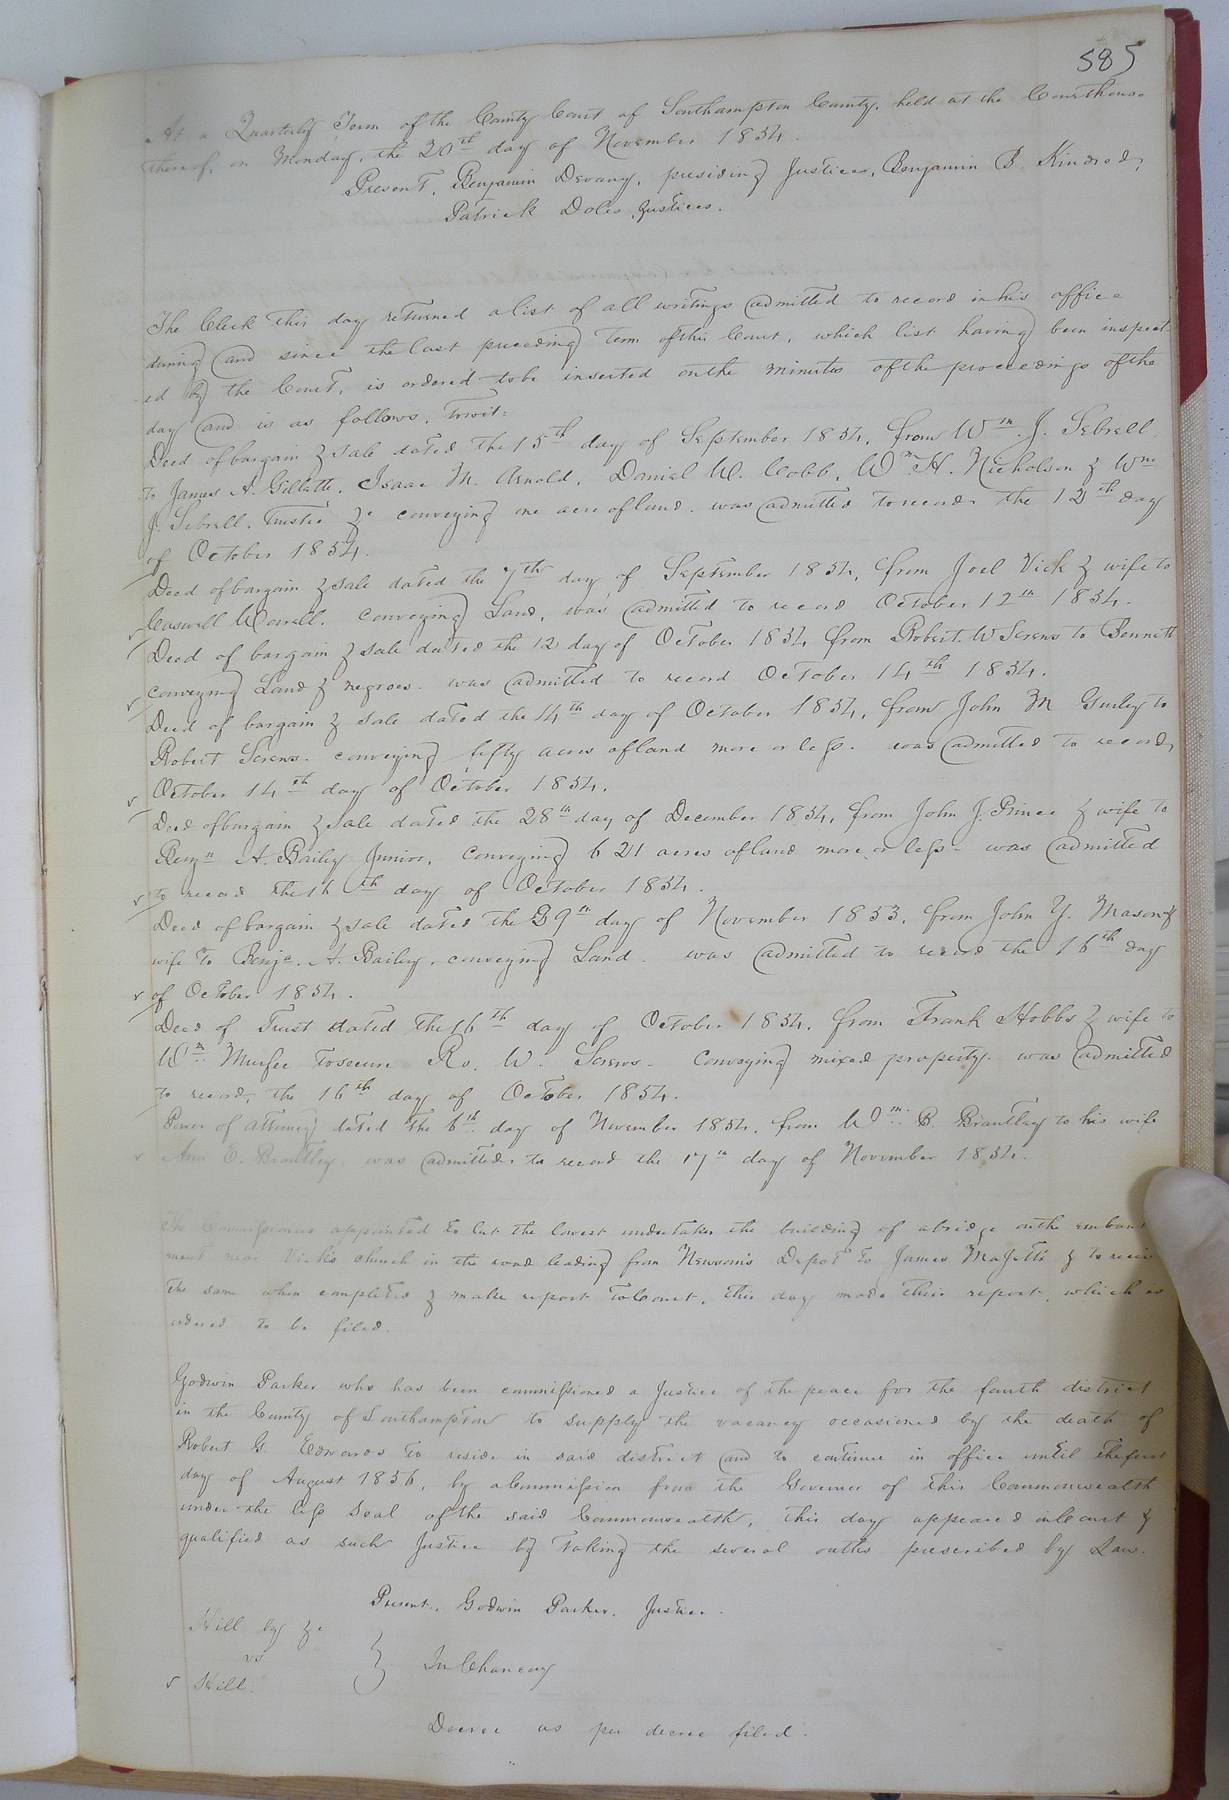 585
At a Quarterly Term of the County Court of Southampton County, held at the Courthouse
thereof, on Monday, the 20th day of November 1854.
Present, Benjamin Devany, presiding Justice, Benjamin B. Kindred,
Patrick Doles, Justices.
The Clerk this day returned a list of all writings admitted to record in his office
during and since the last preceeding term of this Court, which list having been inspect
ed by the Court, is ordered to be inserted on the minutes of the proceedings of the
day and is as follows, Towit:
Deed of bargain & sale dated the 15th day of September 1854, from Wm. J. Sebrell
to James A. Gillette, Isaac M. Arnold, Daniel W. Cobb, Wm H. Nicholson & Wm
J. Sebrell, Trustee &c conveying one acre of land. was admitted to record the 12th day
of October 1854.
Deed of bargain & sale dated the 7th day of September 1854, from Joel Vick & wife to
Caswell Worrell. conveying Land, was admitted to record October 12th 1854.
Deed of bargain & sale dated the 12 day of October 1854 from Robert W Screws to Bennett
conveying Land & negroes. was admitted to record October 14th 1854.
Deed of bargain & sale dated the 14th day of October 1854, from John M Gurley to
Robert Screws. conveying fifty acres of land more or less. was admitted to record,
October 14th day of October 1854.
Deed of bargain & sale dated the 28th day of December 1854, from John J. Prince & wife to
Benjn A. Bailey Junior, conveying 621 acres of land more or less - was admitted
to record the 16th day of October 1854.
Deed of bargain & sale dated the 29th day of November 1853, from John Y. Mason &
wife to Benja. A. Bailey, conveying Land. was admitted to record the 16th day
of October 1854.
Deed of Trust dated the 16th day of October 1854, from Frank Hobbs & wife to
Wm. Murfee to secure Ro. W. Screws - Conveying mixed property. was admitted
to record, the 16th day of October 1854.
Power of attorney dated the 6th day of November 1854, from Wm. B. Brantley to his wife
Ann E. Brantley, was admitted to record the 17th day of November 1854.
The Commissioners appointed to let the lowest undertaker the building of a bridge on the embank
ment near Vick's church in the road leading from Newsom's Depot to James Majett's & to receive
the same when completed & make report to Court, this day made their report, which is
ordered to be filed.
Godwin Parker who has been commissioned a Justice of the peace for the fourth district
in the County of Southampton to supply the vacancy occasioned by the death of
Robert G. Edwards to reside in said district and to continue in office until the first
day of August 1856, by a Commission from the Governor of this Commonwealth
under the less Seal of the said Commonwealth, this day appeared in Court &
qualified as such Justice by taking the several oaths prescribed by Law.
Present, Godwin Parker, Justice.
Hill by &c
vs
Hill.
In Chancery
Decree as per decree filed.